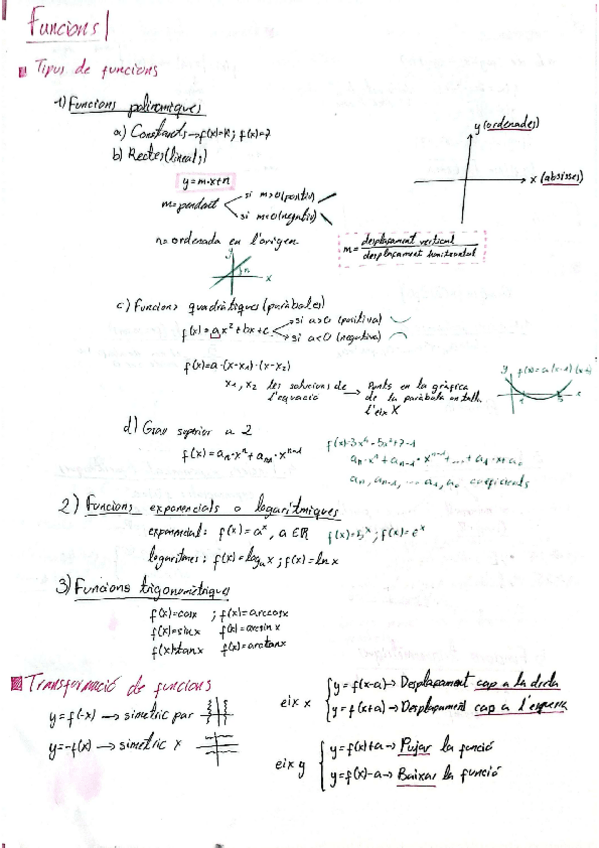 Funcions
Tipus de funcions
1) Funcions polinomiques
a) Constants → f(x)=K; f(x)=7
b) Rectes (lineals)
y=m·x+n
m=pendent
si m>0 (positiu)
si m<0 (negatiu)
n=ordenada en l'origen
y
n
x
y (ordenades)
x (absisses)
m= desplaçament vertical
desplaçament horitzontal
c) Funcions quadràtiques (paràboles)
f(x)=ax²+bx+c
si a>0 (positiva)
si a<0 (negativa)
f(x)=a·(x-x₁)·(x-x₂)
x₁, x₂ les solucions de l'equació → Punts en la gràfica
de la paràbola on talla
l'eix X
y
x
d) Grau superior a 2
f(x)=aₙ·xⁿ+aₙ₋₁·xⁿ⁻¹
aₙ·xⁿ+aₙ₋₁·xⁿ⁻¹+...+a₁·x+a₀
aₙ, aₙ₋₁, ... a₁, a₀ coeficients
2) Funcions exponencials o logarítmiques
exponencial: f(x)=aˣ, a∈ℝ f(x)=5ˣ; f(x)=eˣ
logaritmes: f(x)=logₐx; f(x)=ln x
3) Funcions trigonomètriques
f(x)=cosx ; f(x)=arccosx
f(x)=sinx f(x)=arcsinx
f(x)=tanx f(x)=arctanx
Transformació de funcions
y=f(-x) → simetric par
y=-f(x) → simetric x
eix x
y=f(x-a) → Desplaçament cap a la dreta
y=f(x+a) → Desplaçament cap a l'esquerra
eix y
y=f(x)+a → Pujar la funció
y=f(x)-a → Baixar la funció